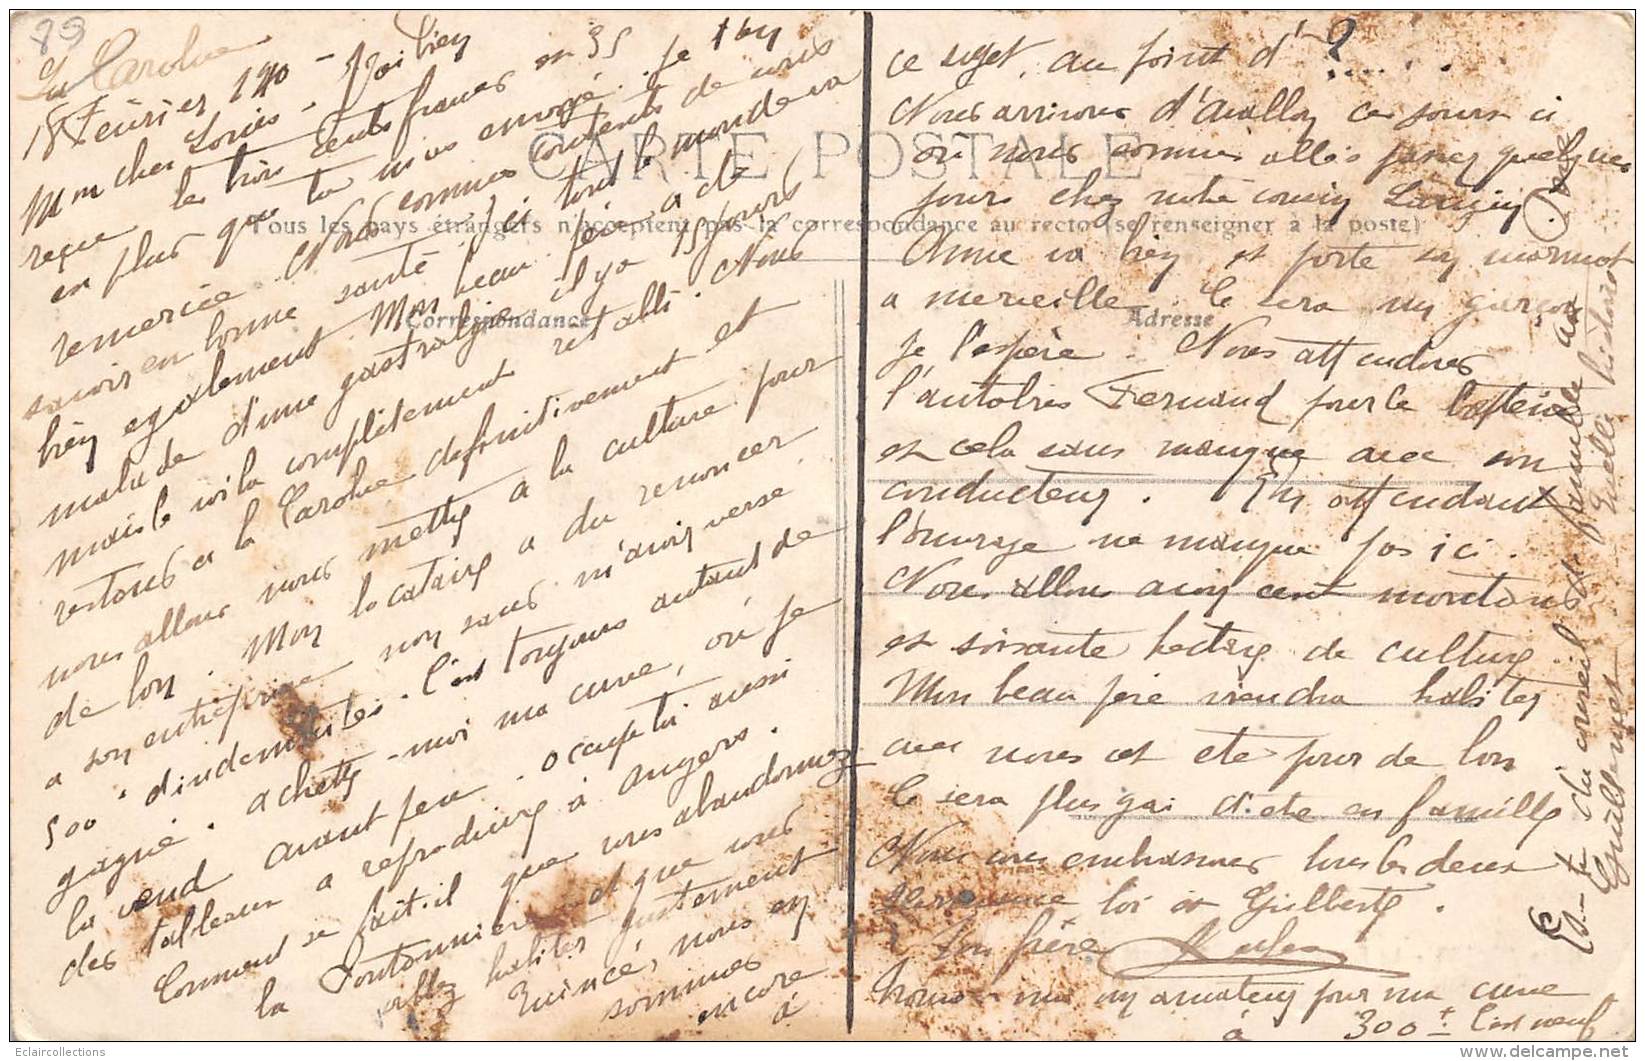 89
La Caroline
18 Février 190 -
Mon cher Louis - J'ai bien
reçu les trois cents francs en 35
en plus que tu m'as envoyé. Je t'en
remercie. Nous sommes contents de vous
savoir en bonne santé, ici tout le monde va
bien également. Mon beau père a été
malade d'une gastralgie il y a 15 jours
mais le voila complètement rétabli. Nous
restons a la Caroline définitivement et
nous allons nous mettre a la culture pour
de bon. Mon locataire a du renoncer
a son entreprise non sans m'avoir versé
500 f d'indemnités. C'est toujours autant de
gagné. achète-moi ma cuve, où je
la vend avant peu. occupe toi aussi
des tableaux a reproduire à Angers.
Comment se fait-il que vous abandonnez
la Pontonnière et que vous
allez habiter justement
Quincé, nous en
sommes
encore
à
CARTE POSTALE
Tous les pays étrangers n'acceptent pas la correspondance au recto (se renseigner à la poste)
Correspondance
Adresse
ce sujet, au point d' ? .....
Nous arrivons d'Avallon ces jours ci
où nous sommes allés passer quelques
jours chez notre cousin
Anne va bien et porte son marmot
a merveille. Ce sera un garçon
je l'espère. Nous attendons
l'autobus Fernand pour le baptême
et cela sans manque avec son
conducteur. En attendant
l'ouvrage ne manque pas ici.
Nous allons avoir cent moutons
et soixante hectares de culture.
Mon beau père viendra habiter
avec nous cet été pour de bon
Ce sera plus gai d'être en famille
Nous vous embrassons tous les deux
toi et Gilberte.
Ton frère
Trouve-moi un amateur pour ma cuve
à 300 f c'est neuf
Es-tu du conseil de famille au
Guillemet Quelle histoire